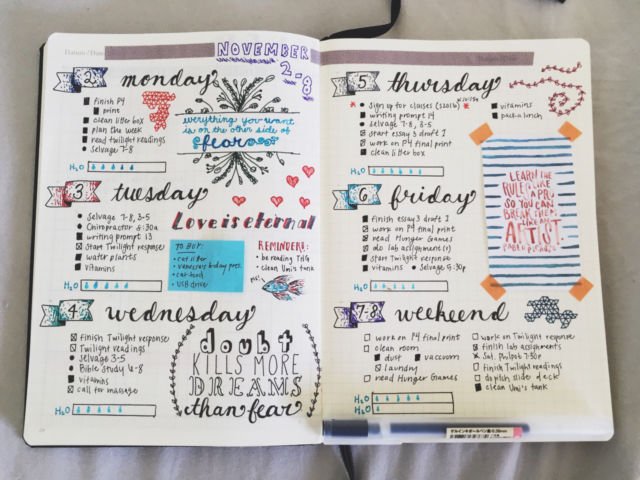 NOVEMBER
2-8
2
monday
finish P4
print
clean litter box
plan the week
read twilight readings
selvage 7-8
H2O
everything you want
is on the other side of
fear
3
tuesday
selvage 7-8, 3-5
Chiropractor 5:30a
writing prompt 13
start Twilight response
water plants
vitamins
H2O
Love is eternal
TO BUY:
cat litter
vanessa's bday pres.
cat food
USB drive
REMINDERS:
be reading THG
clean Umi's tank
4
wednesday
finish Twilight response
Twilight readings
selvage 3-5
Bible Study 6-8
vitamins
call for massage
H2O
doubt
KILLS MORE
DREAMS
than fear
5
thursday
sign up for classes
writing prompt 14
selvage 7-8, 3-5
start essay 3 draft 1
work on P4 final print
clean litter box
vitamins
pack a lunch
H2O
LEARN THE
RULES LIKE
A PRO,
SO YOU CAN
BREAK THEM
LIKE AN
ARTIST.
PABLO PICASSO
6
friday
finish essay 3 draft 1
work on P4 final print
read Hunger Games
do lab assignment(s)
start Twilight response
vitamins
selvage 5:30p
H2O
7-8
weekend
work on P4 final print
clean room
dust
vacuum
laundry
read Hunger Games
work on Twilight response
finish lab assignments
finish Twilight readings
do pitch slide deck
clean Umi's tank
H2O
H2O